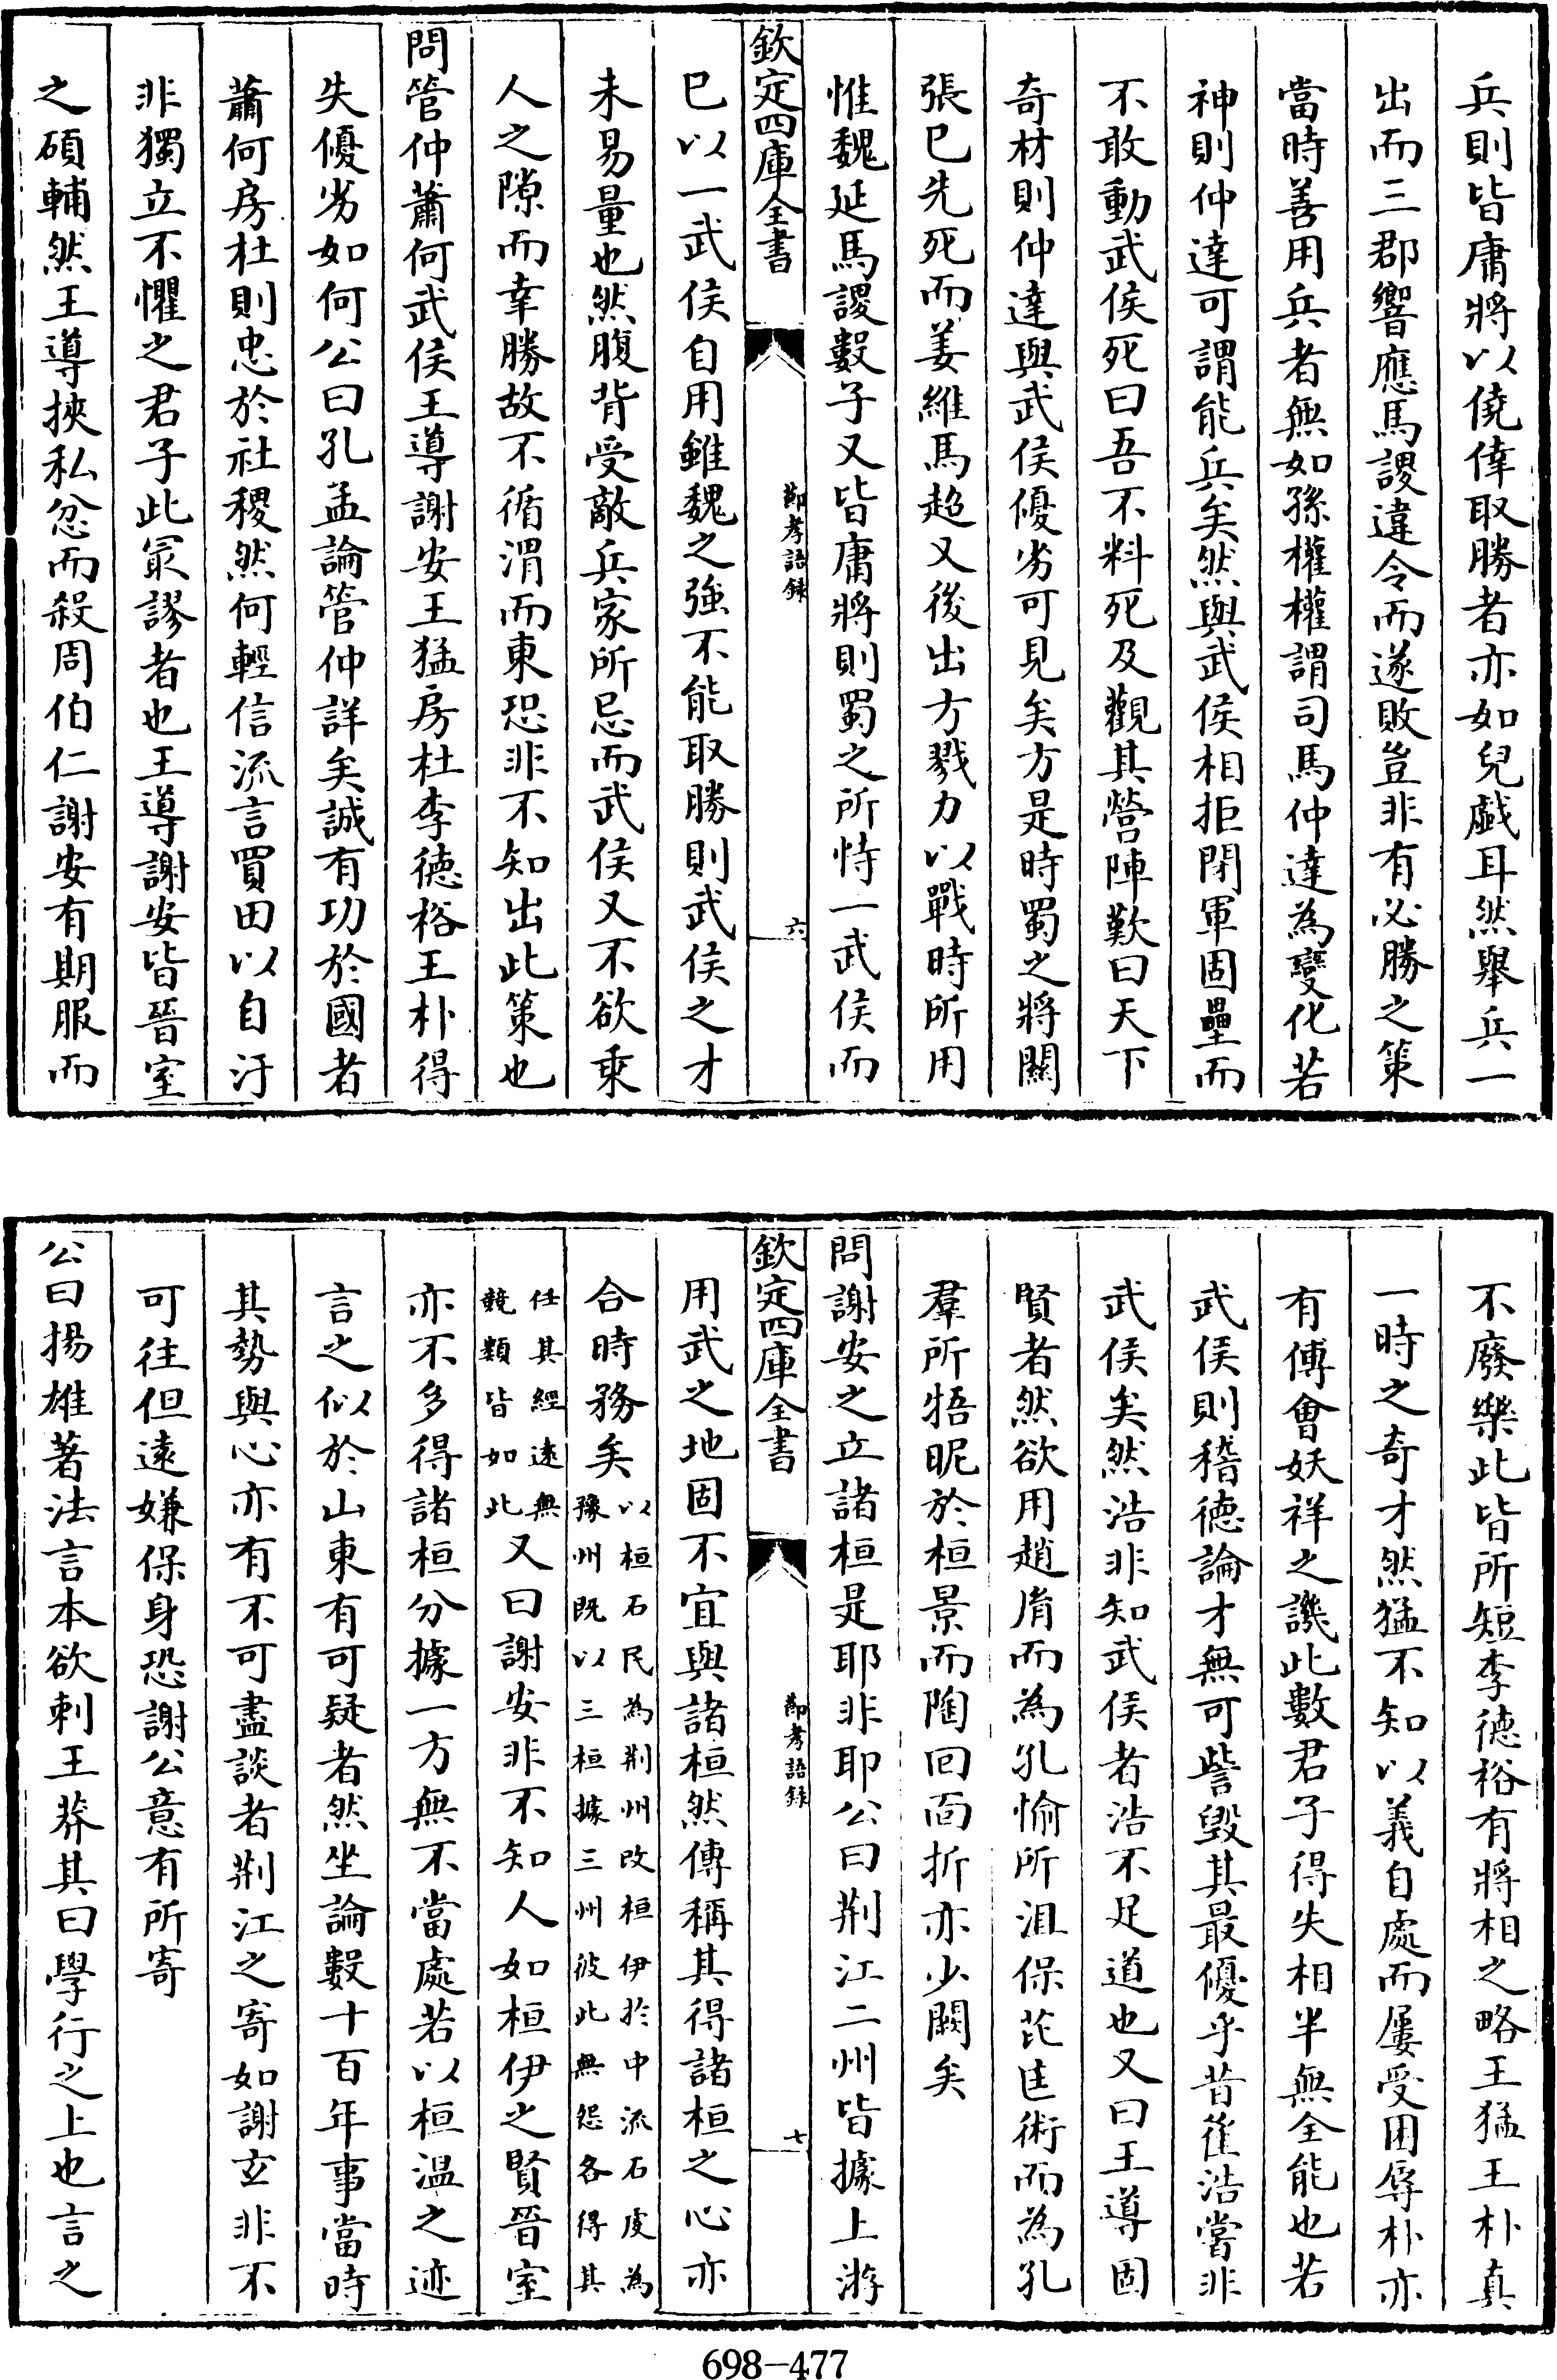 兵則皆庸將以僥倖取勝者亦如兒戯耳然舉兵一
出而三郡響應馬謖違令而遂敗豈非有必勝之策
當時善用兵者無如孫權權謂司馬仲達為變化若
神則仲達可謂能兵矣然與武侯相拒閉軍固壘而
不敢動武侯死曰吾不料死及觀其營陣歎曰天下
奇材則仲達與武侯優劣可見矣方是時蜀之將關
張已先死而姜維馬超又後出方戮力以戰時所用
惟魏延馬謖數子又皆庸將則蜀之所恃一武侯而
欽定四庫全書
節孝語録
六
已以一武侯自用雖魏之強不能取勝則武侯之才
未易量也然腹背受敵兵家所忌而武侯又不欲乘
人之隙而幸勝故不循渭而東恐非不知出此策也
問管仲蕭何武侯王導謝安王猛房杜李德裕王朴得
失優劣如何公曰孔孟論管仲詳矣誠有功於國者
蕭何房杜則忠於社稷然何輕信流言買田以自汙
非獨立不懼之君子此冣謬者也王導謝安皆晉室
之碩輔然王導挾私忿而殺周伯仁謝安有期服而
不廢樂此皆所短李德裕有將相之略王猛王朴真
一時之奇才然猛不知以義自處而屢受困辱朴亦
有傅會妖祥之譏此數君子得失相半無全能也若
武侯則稽德論才無可訾毀其最優乎昔崔浩嘗非
武侯矣然浩非知武侯者浩不足道也又曰王導固
賢者然欲用趙胤而為孔愉所沮保芘匡術而為孔
羣所牾昵於桓景而陶回面折亦少闕矣
問謝安之立諸桓是耶非耶公曰荆江二州皆據上游
欽定四庫全書
節孝語録
七
用武之地固不宜與諸桓然傳稱其得諸桓之心亦
合時務矣以桓石民為荆州改桓伊於中流石虔為
豫州既以三桓據三州彼此無怨各得其
任其經遠無
競類皆如此又曰謝安非不知人如桓伊之賢晉室
亦不多得諸桓分據一方無不當處若以桓温之迹
言之似於山東有可疑者然坐論數十百年事當時
其勢與心亦有不可盡談者荆江之寄如謝玄非不
可往但遠嫌保身恐謝公意有所寄
公曰揚雄著法言本欲刺王莽其曰學行之上也言之
698-477